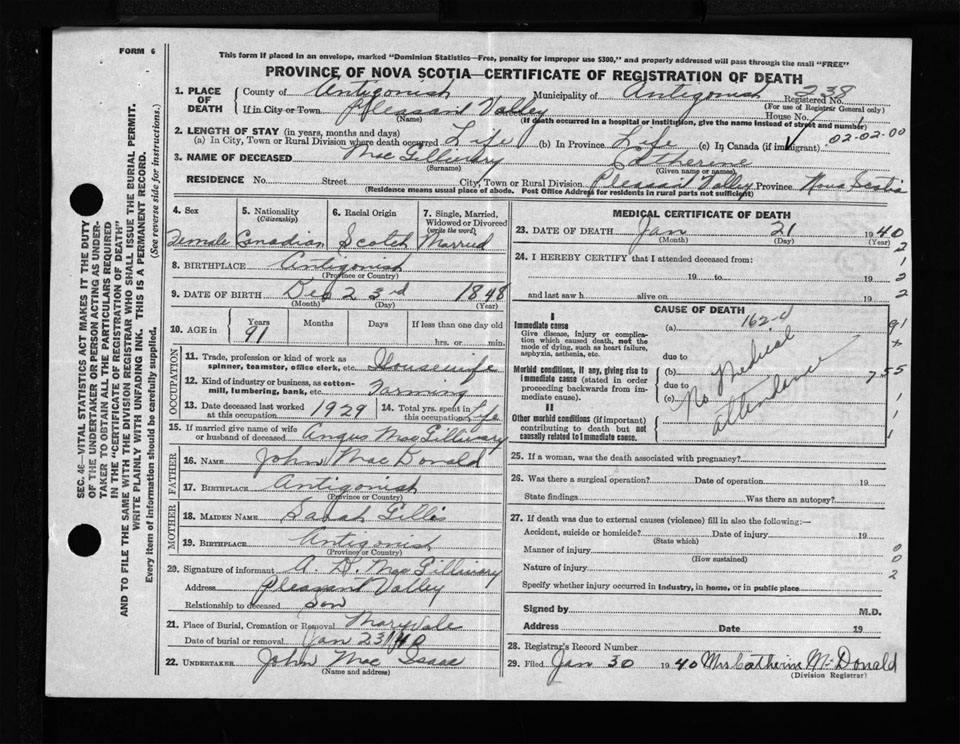 FORM 6
This form if placed in an envelope, marked "Dominion Statistics—Free, penalty for improper use $300," and properly addressed will pass through the mail "FREE"
PROVINCE OF NOVA SCOTIA—CERTIFICATE OF REGISTRATION OF DEATH
SEC. 46—VITAL STATISTICS ACT MAKES IT THE DUTY
OF THE UNDERTAKER OR PERSON ACTING AS UNDER-
TAKER TO OBTAIN ALL THE PARTICULARS REQUIRED
IN THE "CERTIFICATE OF REGISTRATION OF DEATH"
AND TO FILE THE SAME WITH THE DIVISION REGISTRAR WHO SHALL ISSUE THE BURIAL PERMIT.
WRITE PLAINLY WITH UNFADING INK. THIS IS A PERMANENT RECORD.
Every item of information should be carefully supplied. (See reverse side for instructions.)
1. PLACE OF DEATH County of Antigonish Municipality of Antigonish 238 Registered No.
(For use of Registrar General only)
If in City or Town Pleasant Valley House No.
(Name) (If death occurred in a hospital or institution, give the name instead of street and number)
2. LENGTH OF STAY (in years, months and days)
(a) In City, Town or Rural Division where death occurred Life (b) In Province Life (c) In Canada (if immigrant) 02-02-00
3. NAME OF DECEASED MacGillivary Catherine
(Surname) (Given name or names)
RESIDENCE No. Street City, Town or Rural Division Pleasant Valley Province Nova Scotia
(Residence means usual place of abode. Post Office Address for residents in rural parts not sufficient)
4. Sex 5. Nationality (Citizenship) 6. Racial Origin 7. Single, Married, Widowed or Divorced (write the word)
Female Canadian Scotch Married
8. BIRTHPLACE Antigonish
(Province or Country)
9. DATE OF BIRTH Dec 23rd 1848
(Month) (Day) (Year)
10. AGE in Years Months Days If less than one day old
91 hrs. or min.
OCCUPATION
11. Trade, profession or kind of work as spinner, teamster, office clerk, etc. Housewife
12. Kind of industry or business, as cotton-mill, lumbering, bank, etc. Farming
13. Date deceased last worked at this occupation 1929 14. Total yrs. spent in this occupation Life
15. If married give name of wife or husband of deceased Angus MacGillivary
FATHER
16. NAME John MacDonald
17. BIRTHPLACE Antigonish
(Province or Country)
MOTHER
18. MAIDEN NAME Sarah Gillis
19. BIRTHPLACE Antigonish
(Province or Country)
20. Signature of informant A. D. MacGillivary
Address Pleasant Valley
Relationship to deceased Son
21. Place of Burial, Cremation or Removal Maryvale
Date of burial or removal Jan 23/40
22. UNDERTAKER John MacIsaac
(Name and address)
MEDICAL CERTIFICATE OF DEATH
23. DATE OF DEATH Jan 21 1940
(Month) (Day) (Year)
2
24. I HEREBY CERTIFY that I attended deceased from:
1
19 to 19 2
and last saw h alive on 19 2
CAUSE OF DEATH
I
Immediate cause (a) 162-a 91
Give disease, injury or complication which caused death, not the mode of dying, such as heart failure, asphyxia, asthenia, etc.
due to
Morbid conditions, if any, giving rise to immediate cause (stated in order proceeding backwards from immediate cause). (b) No Medical attendance 755
due to
(c) 1
II
Other morbid conditions (if important) contributing to death but not causally related to immediate cause. 1
25. If a woman, was the death associated with pregnancy?
26. Was there a surgical operation? Date of operation 19
State findings Was there an autopsy?
27. If death was due to external causes (violence) fill in also the following:—
Accident, suicide or homicide? Date of injury 19
(State which)
Manner of injury 0
(How sustained) 0
Nature of injury 2
Specify whether injury occurred in industry, in home, or in public place
Signed by M.D.
Address Date 19
28. Registrar's Record Number
29. Filed Jan 30 1940 Mrs Catherine McDonald
(Division Registrar)